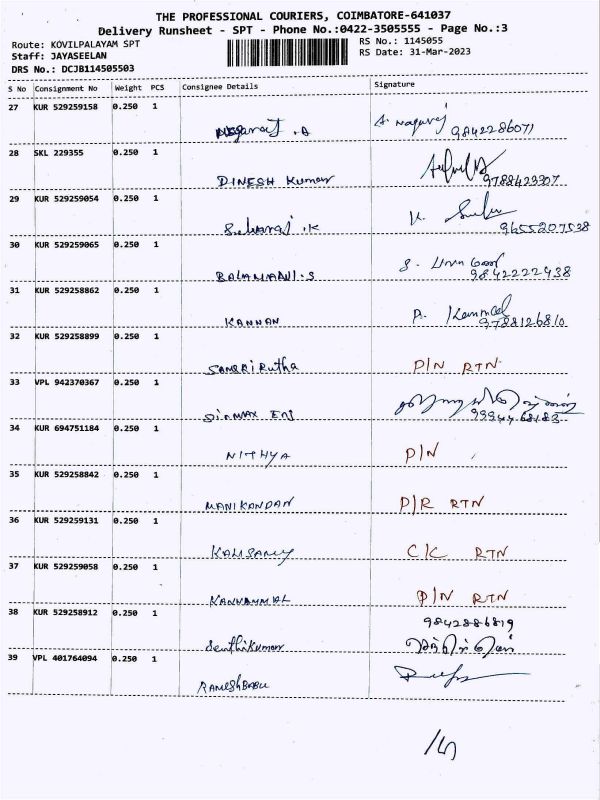 THE PROFESSIONAL COURIERS, COIMBATORE-641037
Delivery Runsheet - SPT - Phone No.:0422-3505555 - Page No.:3
Route: KOVILPALAYAM SPT
RS No.: 1145055
Staff: JAYASEELAN
RS Date: 31-Mar-2023
DRS No.: DCJB114505503
S No Consignment No Weight PCS Consignee Details Signature
27 KUR 529259158 0.250 1
Nagaraj .A A. Nagaraj 9842286071
28 SKL 229355 0.250 1
DINESH Kumar 9788423307
29 KUR 529259054 0.250 1
Selvaraj .K K. 9655207538
30 KUR 529259065 0.250 1
BALAMANI.S S. 9842222438
31 KUR 529258862 0.250 1
KANNAN P. 9788126810
32 KUR 529258899 0.250 1
P/N RTN
33 VPL 942370367 0.250 1
34 KUR 694751184 0.250 1
NITHYA P/N
35 KUR 529258842 0.250 1
MANIKANDAN P/R RTN
36 KUR 529259131 0.250 1
KALISAMY C/C RTN
37 KUR 529259058 0.250 1
KANNAMMAL P/N RTN
38 KUR 529258912 0.250 1
9842886819
Senthilkumar
39 VPL 401764094 0.250 1
RAMESHBABU